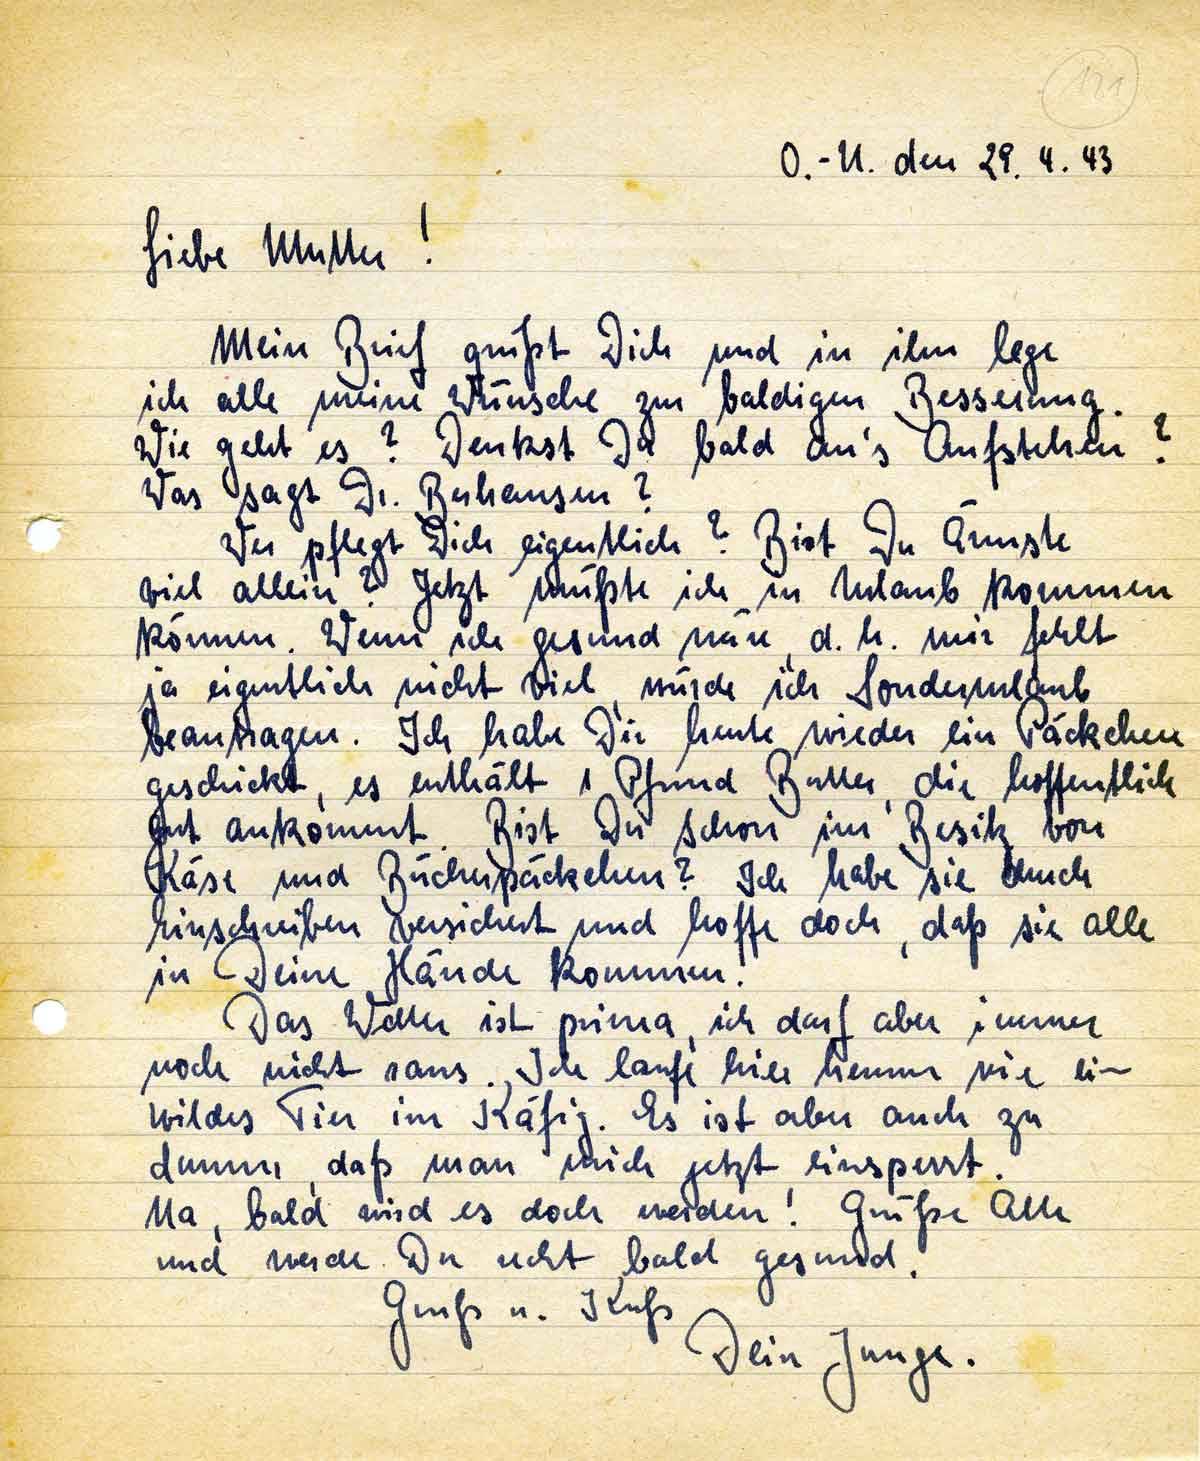 121
O.-U. den 29. 4. 43
Liebe Mutter!
Mein Brief grüßt Dich und in ihm lege
ich alle meine Wünsche zur baldigen Besserung.
Wie geht es? Denkst Du bald an's Aufstehen?
Was sagt Dr. Berhausen?
Wer pflegt Dich eigentlich? Bist Du Ärmste
viel allein? Jetzt müßte ich in Urlaub kommen
können. Wenn ich gesund wäre, d.h. mir fehlt
ja eigentlich nicht viel, würde ich Sonderurlaub
beantragen. Ich habe Dir heute wieder ein Päckchen
geschickt, es enthält 1 Pfund Butter, die hoffentlich
gut ankommt. Bist Du schon im Besitz von
Käse und Bücherpäckchen? Ich habe sie durch
Einschreiben versichert und hoffe doch, daß sie alle
in Deine Hände kommen.
Das Wetter ist prima, ich darf aber immer
noch nicht raus. Ich laufe hier herum wie ein
wildes Tier im Käfig. Es ist aber auch zu
dumm, daß man mich jetzt einsperrt.
Na, bald wird es doch werden! Grüße Alle
und werde Du recht bald gesund.
Gruß u. Kuß
Dein Junge.